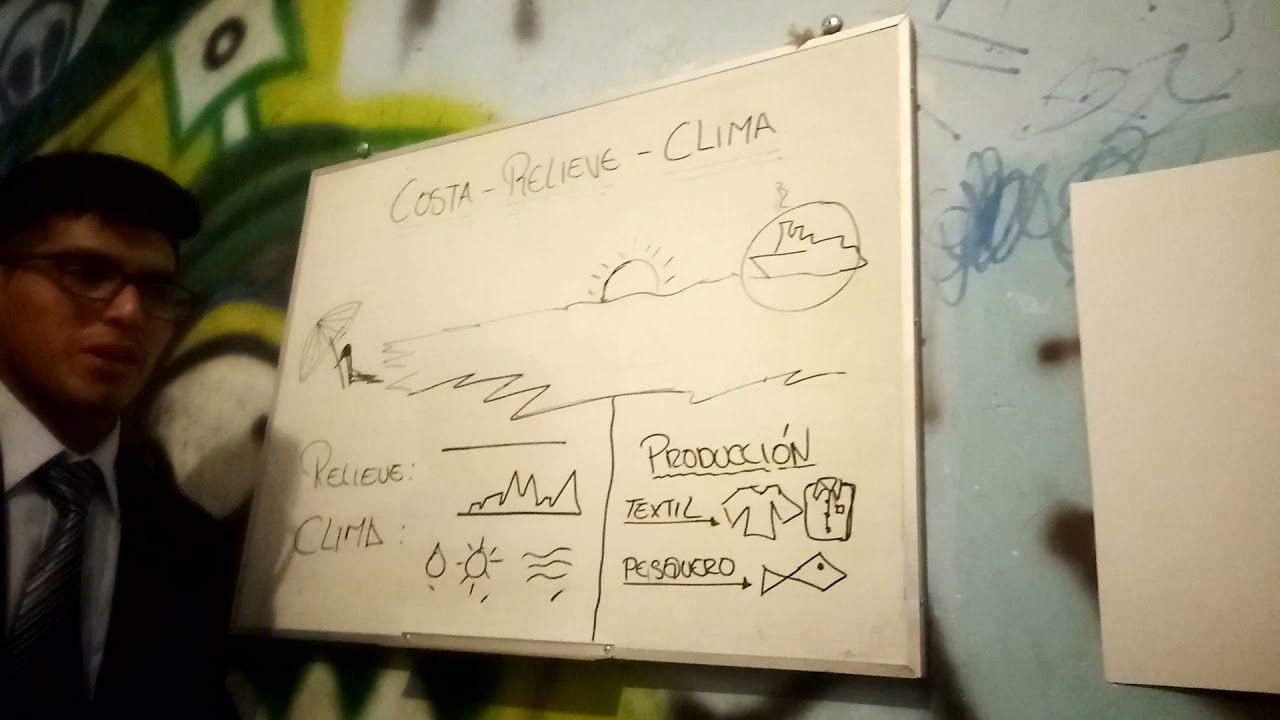 COSTA - RELIEVE - CLIMA
RELIEVE:
CLIMA:
PRODUCCIÓN
TEXTIL
PESQUERO